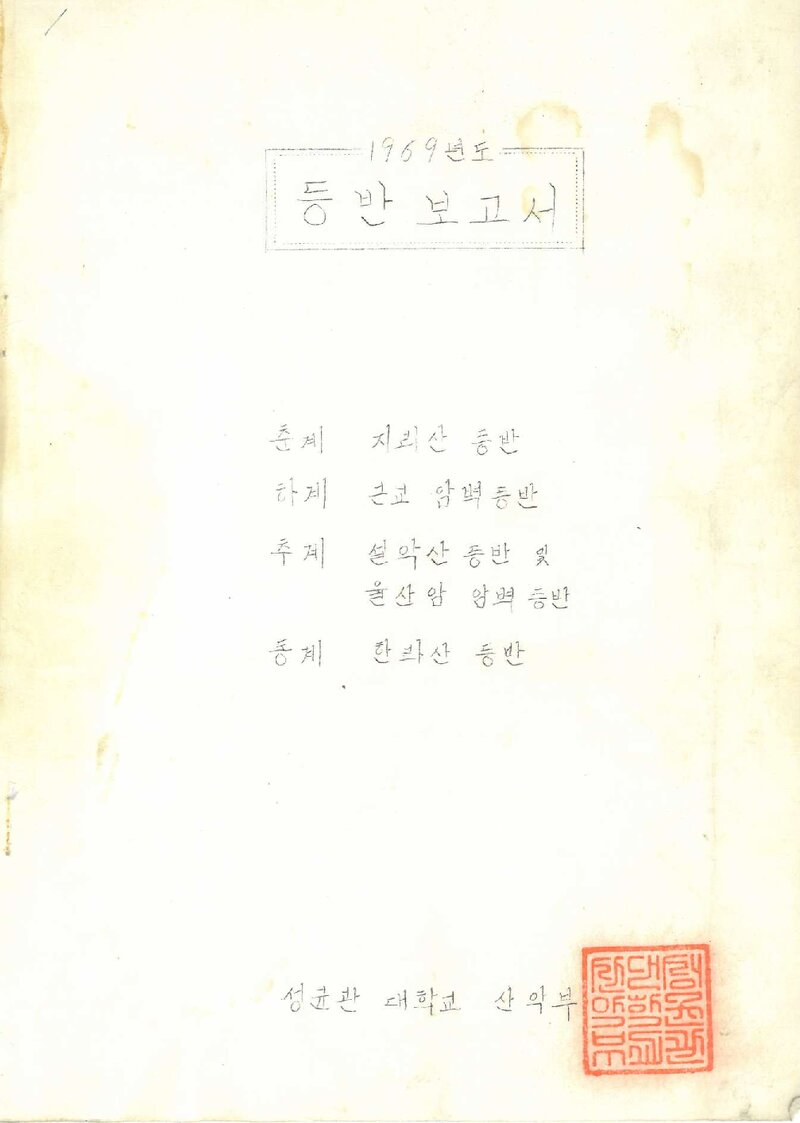 1969년도
등반 보고서
춘계 지리산 등반
하계 근교 암벽등반
추계 설악산 등반 및
울산암 암벽 등반
동계 한라산 등반
성균관 대학교 산악부
성균관
대학교
산악부